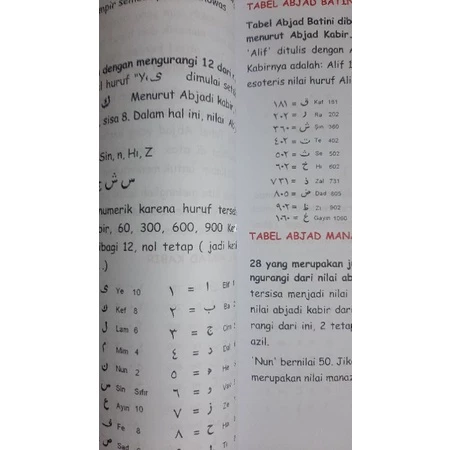 dengan mengurangi 12 dari
huruf "Y، ى dimulai
ك Menurut Abjadi kabir
sisa 8. Dalam hal ini, nilai
Sin, n, Hı, Z
س ش خ
numerik karena huruf
60, 300, 600, 900
12, nol tetap ( jadi
.)
ى Ye 10 ١ = ا Elif
ك Kef 8 ٢ = ب Ba
ل Lam 6 ٣ = ج Cim
م Mim 4 ٤ = د Dal
ن Nun 2 ٥ = ه He
س Sin Sıfır ٦ = و Vav
ع Ayın 10 ٧ = ز Ze
ف Fe 8 ٨ = ح Ha
ص Sad
TABEL ABJAD
Tabel Abjad Batini
menurut Abjad Kabir.
'Alif' ditulis dengan
Kabirnya adalah: Alif 1
esoteris nilai huruf
١٨١ = ق Kaf 181
٢٠٢ = ر Ra 202
٣٦٠ = ش Şın 360
٤٠٢ = ت Te 402
٥٠٢ = ث Se 502
٦٠٢ = خ Hı 602
٧٣١ = ذ Zal 731
٨٠٥ = ض Dad 805
٩٠٢ = ظ Zı 902
١٠٦٠ = غ Gayın 1060
TABEL ABJAD
28 yang merupakan
ngurangi dari nilai
tersisa menjadi nilai
nilai abjad kabir
rangi dari ini, 2
azil.
'Nun' bernilai 50.
merupakan nilai